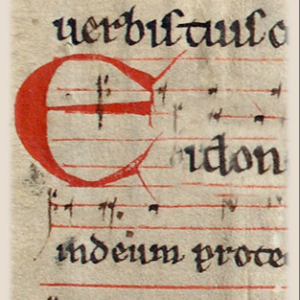 uerbis tuis c
E
idon
indeum prote